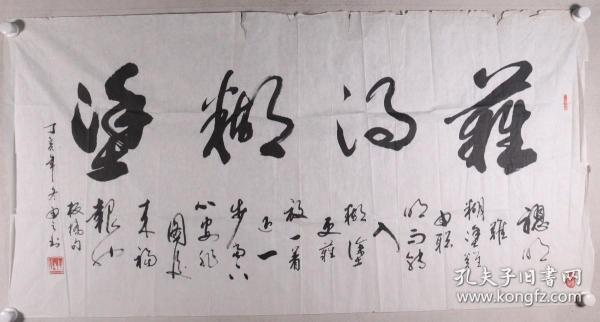 難得糊塗
聰明
難
糊塗難
由聪
明而轉
入
糊塗
更難
放一着
退一
步當下
心安非
圖後
来福
報也
板橋句
丁亥年
孔夫子旧书网
www.kongfz.com